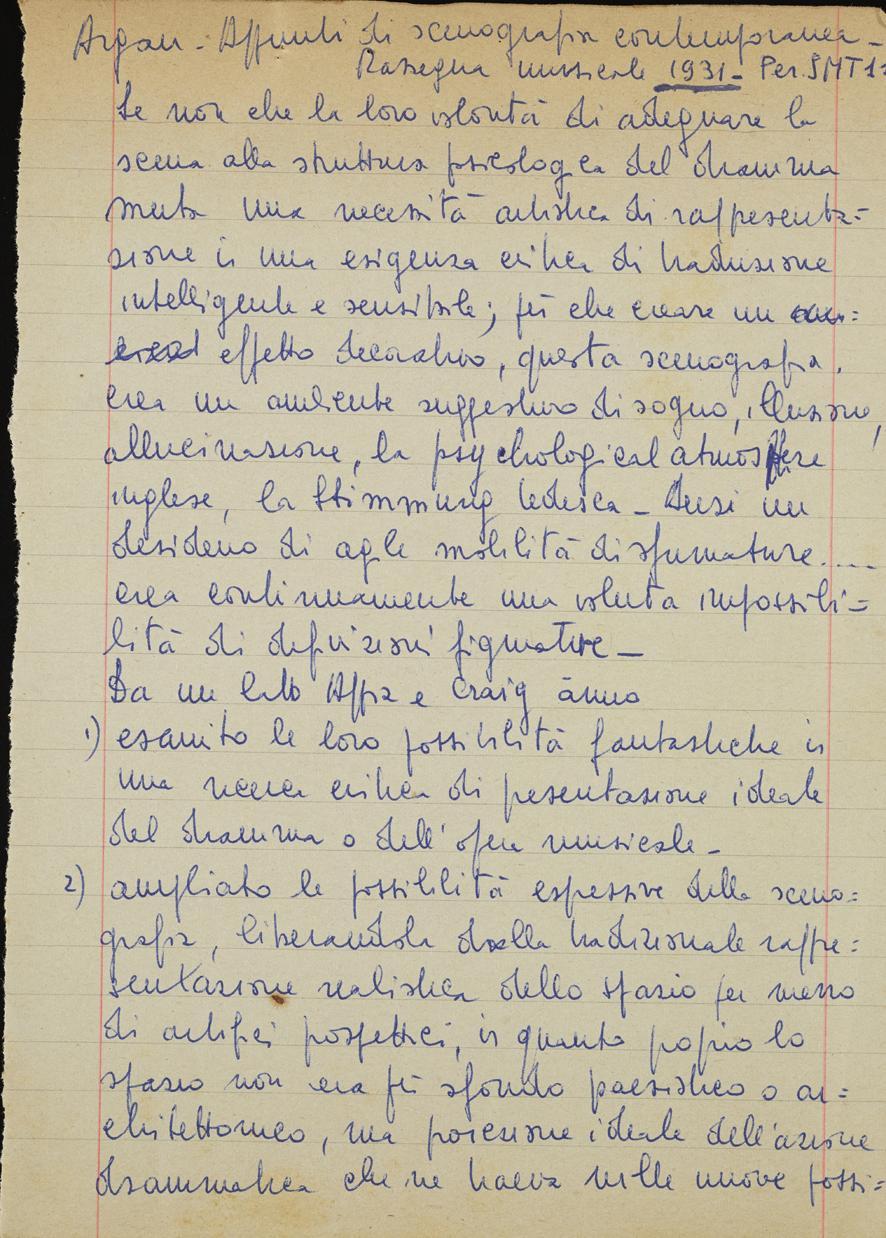 Argan - Appunti di scenografia contemporanea -
Rassegna musicale 1931 - Per. SMT 1
Se non che la loro volontà di adeguare la
scena alla struttura psicologica del dramma
muta una necessità artistica di rappresenta=
zione in una esigenza critica di traduzione
intelligente e sensibile; più che creare un
effetto decorativo, questa scenografia,
crea un ambiente suggestivo di sogno, illusione,
allucinazione, la psychological atmosfere
inglese, la Stimmung tedesca - Anzi un
desiderio di agile mobilità di sfumature....
crea continuamente una voluta impossibi=
lità di definizioni figurative -
Da un lato Appia e Craig ànno
1) esaurito le loro possibilità fantastiche in
una ricerca critica di presentazione ideale
del dramma o dell'opera musicale -
2) ampliato le possibilità espressive della sceno=
grafia, liberandola dalla tradizionale rappre=
sentazione realistica dello spazio per mezzo
di artifici prospettici, in quanto proprio lo
spazio non era più sfondo paesistico o ar=
chitettonico, ma proiezione ideale dell'azione
drammatica che ne traeva nelle nuove possi=